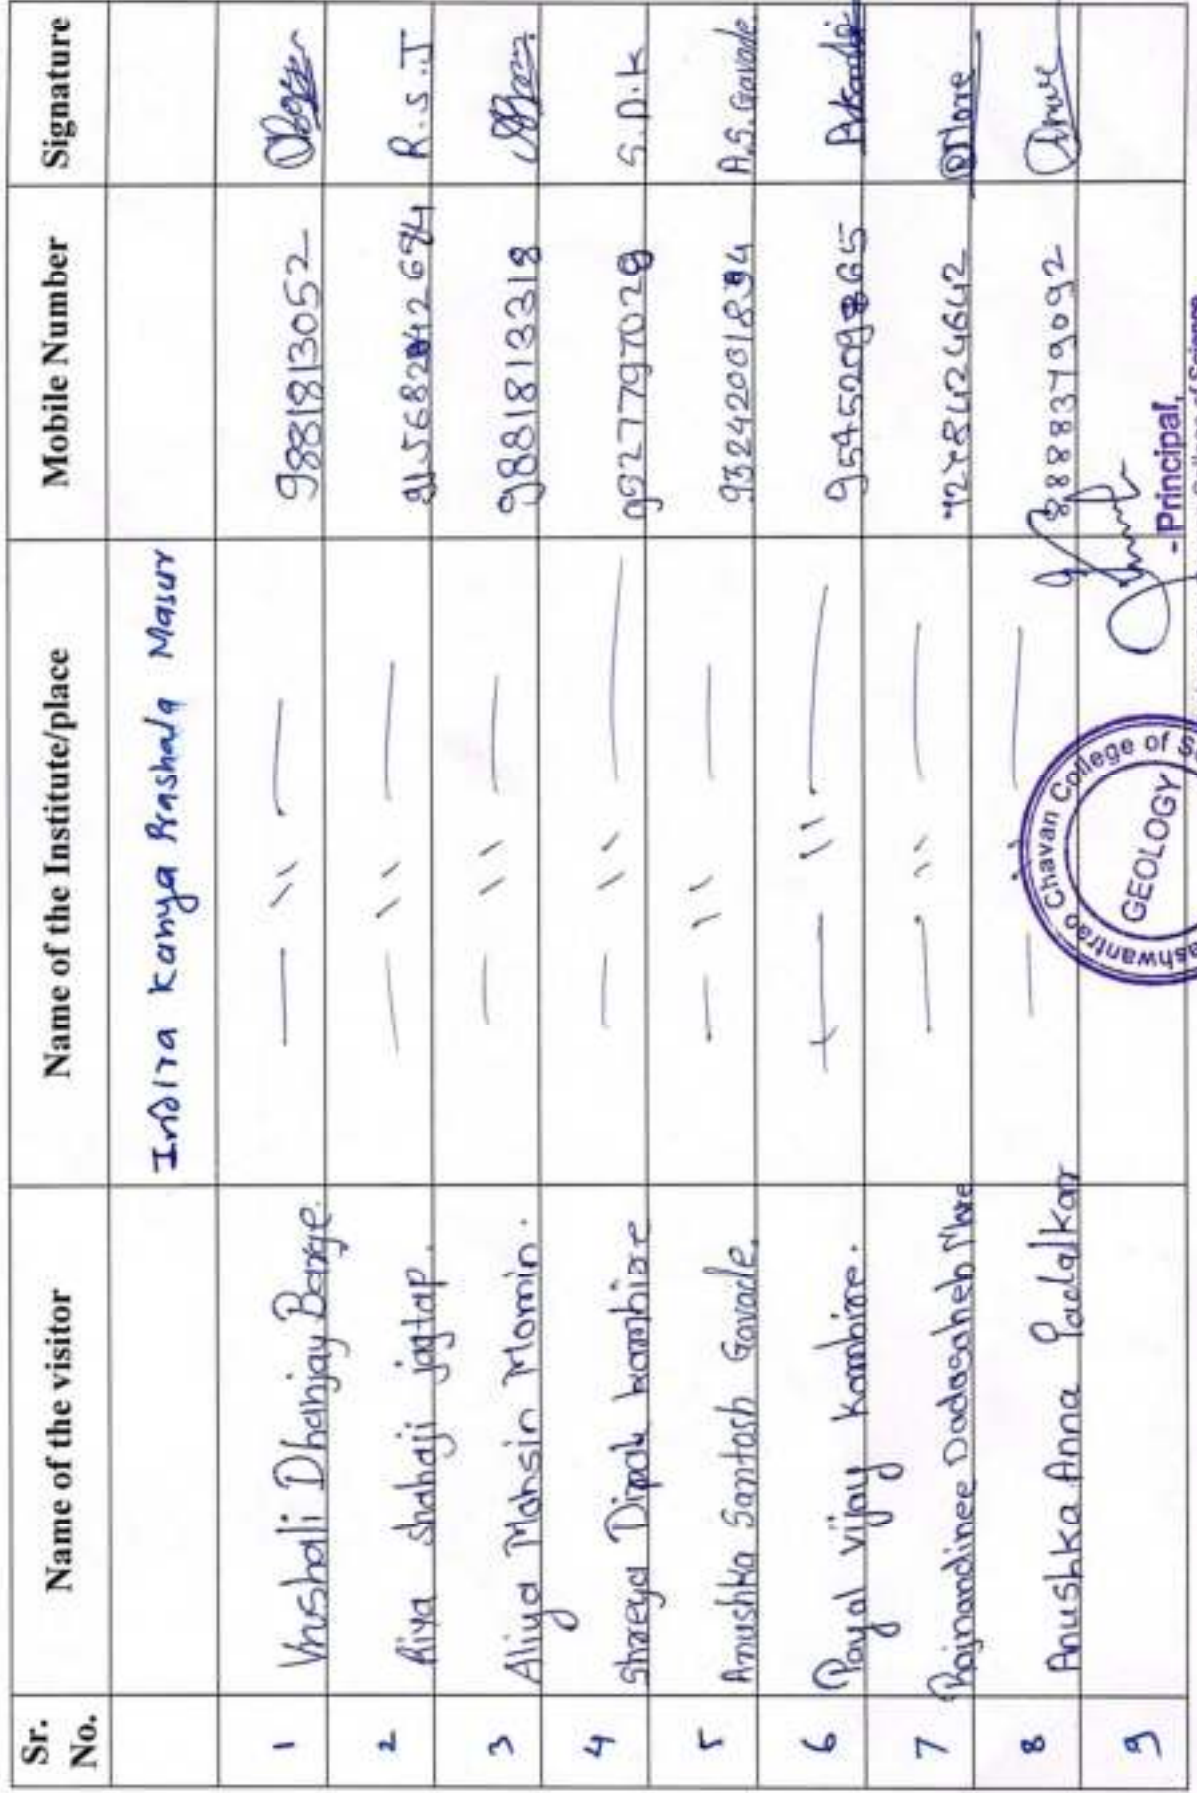 Sr. No. Name of the visitor Name of the Institute/place Mobile Number Signature
Indira Kanya Prashala Masur
1 Vrushali Dhanjay Barge. — 11 — 9881813052
2 Riya shahaji jagtap. — 11 — R.S.J
3 Aliya Mohsin Momin. — 11 — 9881813318
4 Shreya Dipak kambire — 11 — S.D.K
5 Anushka Santosh Gavade. — 11 — A.S.Gavade
6 Payal vijay kambire. — 11 —
7 Rajnandinee Dadasaheb More — 11 — More
8 Anushka Anna Padalkar — 11 — 8888379092
9
Chavan College of
GEOLOGY
Principal,